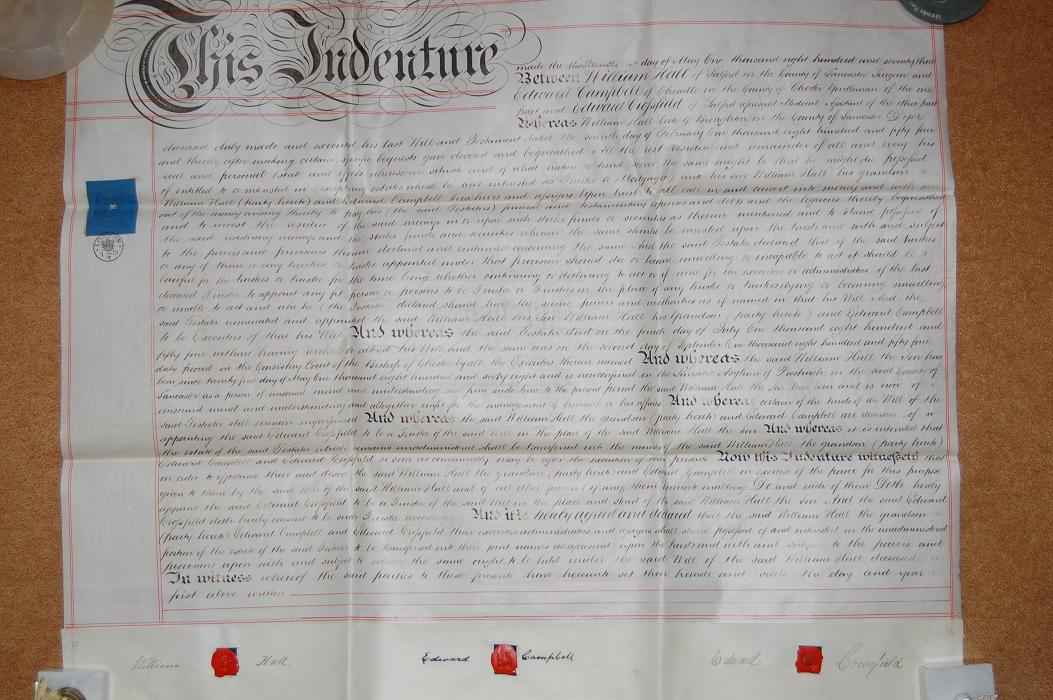 This Indenture made the thirteenth day of May One thousand eight hundred and seventy three
Between William Hall of Salford in the County of Lancaster Surgeon and
Edward Campbell of Cheadle in the County of Chester Gentleman of the one
part and Edward Crossfield of Salford aforesaid Medical Assistant of the other part
Whereas William Hall late of Broughton in the County of Lancaster Dyer
deceased duly made and executed his last Will and Testament dated the seventh day of February One thousand eight hundred and fifty four
and thereby after making certain specific bequests gave devised and bequeathed all the rest residue and remainder of all and every his
real and personal estate and effects wheresoever situate and of what nature or kind soever the same might be that he might die possessed
of entitled to or interested in (excepting estates where he was interested as Trustee or Mortgagee) unto his son William Hall his grandson
William Hall (party hereto) and Edward Campbell their heirs and assigns Upon trust to sell call in and convert into money and with and
out of the money arising thereby to pay his (the said Testators) funeral and testamentary expenses and debts and the legacies thereby bequeathed
and to invest the residue of the said moneys in or upon such stocks funds or securities as therein mentioned and to stand possessed of
the said residuary moneys and the stocks funds and securities wherein the same should be invested upon the trusts and with and subject
to the powers and provisions therein declared and contained concerning the same And the said Testator declared that if the said trustees
or any of them or any trustees or trustee appointed under that provision should die or become unwilling or incapable to act it should be
lawful for the trustees or trustee for the time being whether continuing or declining to act or if none for the executors or administrators of the last
deceased Trustee to appoint any fit person or persons to be Trustee or Trustees in the place of any trustee or trustees dying or becoming unwilling
or unable to act and who he (the Testator) declared should have the same powers and authorities as if named in that his Will And the
said Testator nominated and appointed the said William Hall his Son William Hall his Grandson (party hereto) and Edward Campbell
to be Executors of that his Will And whereas the said Testator died on the fourth day of July One thousand eight hundred and
fifty five without having revoked or altered his Will and the same was on the second day of September One thousand eight hundred and fifty five
duly proved in the Consistory Court of the Bishop of Chester by all the Executors therein named And whereas the said William Hall the Son has
been since twenty first day of May One thousand eight hundred and sixty eight and is now confined in the Lunatic Asylum of Prestwich in the said County of
Lancaster as a person of unsound mind and understanding and from such time to the present period the said William Hall the Son has been and is now of
unsound mind and understanding and altogether unfit for the management of himself or his affairs And whereas certain of the trusts of the Will of the
said Testator still remain unperformed And whereas the said William Hall the grandson (party hereto) and Edward Campbell are desirous of
appointing the said Edward Crossfield to be a Trustee of the said Will in the place of the said William Hall the son And whereas it is intended that
the estate of the said Testator which remains unadministered shall be transferred into the names of the said William Hall the grandson (party hereto)
Edward Campbell and Edward Crossfield so soon as conveniently may be after the execution of these presents Now this Indenture witnesseth that
in order to effectuate their said desire the said William Hall the grandson (party hereto) and Edward Campbell in exercise of the power for this purpose
given to them by the said Will of the said William Hall and of all other powers (if any) them hereunto enabling Do and each of them Doth hereby
appoint the said Edward Crossfield to be a Trustee of the said Will in the place and stead of the said William Hall the son And the said Edward
Crossfield doth hereby consent to be such Trustee accordingly And it is hereby agreed and declared that the said William Hall the grandson
(party hereto) Edward Campbell and Edward Crossfield their executors administrators and assigns shall stand possessed of and interested in the unadministered
portion of the estate of the said Testator to be transferred into their joint names as aforesaid upon the trusts and with and subject to the powers and
provisions upon with and subject to which the same ought to be held under the said Will of the said William Hall deceased
In witness whereof the said parties to these presents have hereunto set their hands and seals the day and year
first above written
William Hall Edward Campbell Edward Crossfield